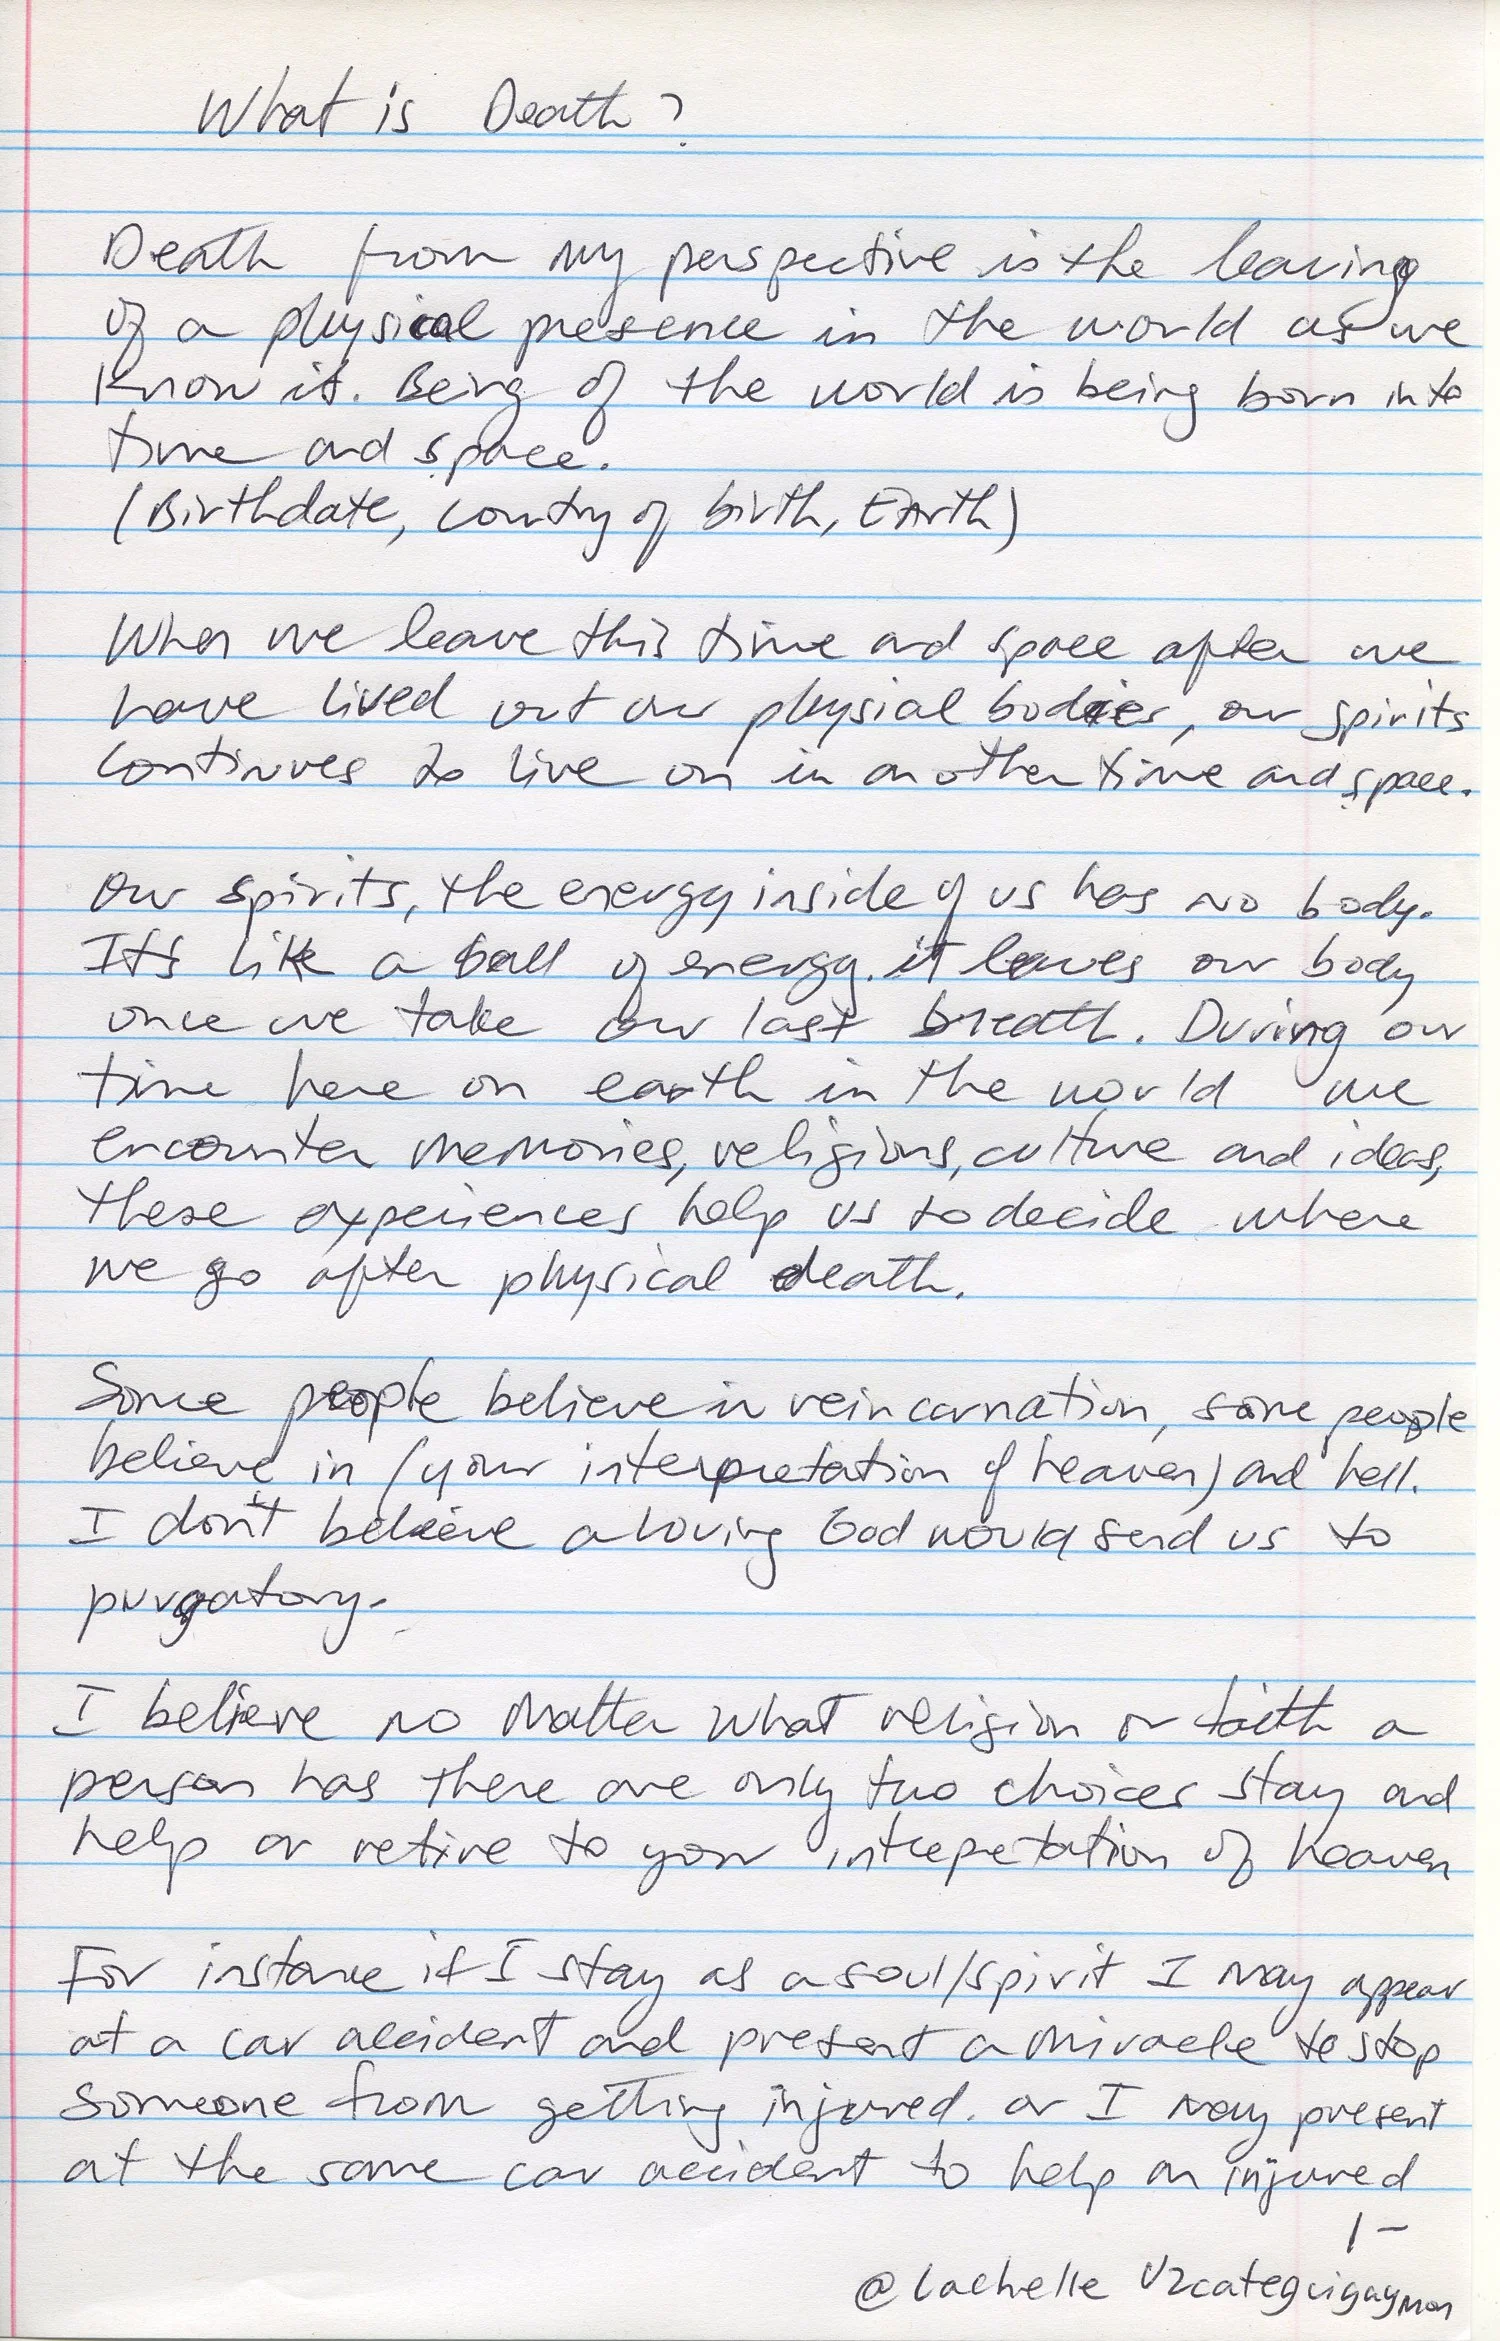 What is Death?
Death from my perspective is the leaving
of a physical presence in the world as we
know it. Being of the world is being born into
time and space.
(Birthdate, country of birth, Earth)
When we leave this time and space after we
have lived out our physial bodies, our spirits
continues to live on in another time and space.
Our spirits, the energy inside of us has no body.
It's like a ball of energy. it leaves our body
once we take our last breath. During our
time here on earth in the world we
encounter memories, religions, culture and ideas,
these experiences help us to decide where
we go after physical death.
Some people believe in reincarnation, some people
believe in (your interpretation of heaven) and hell.
I don't believe a loving God would send us to
purgatory.
I believe no matter what religion or faith a
person has there are only two choices stay and
help or retire to your intrepretation of heaven
For instance if I stay as a soul/spirit I may appear
at a car accident and present a miracle to stop
someone from getting injured. or I may present
at the same car accident to help an injured
1-
@Lachelle